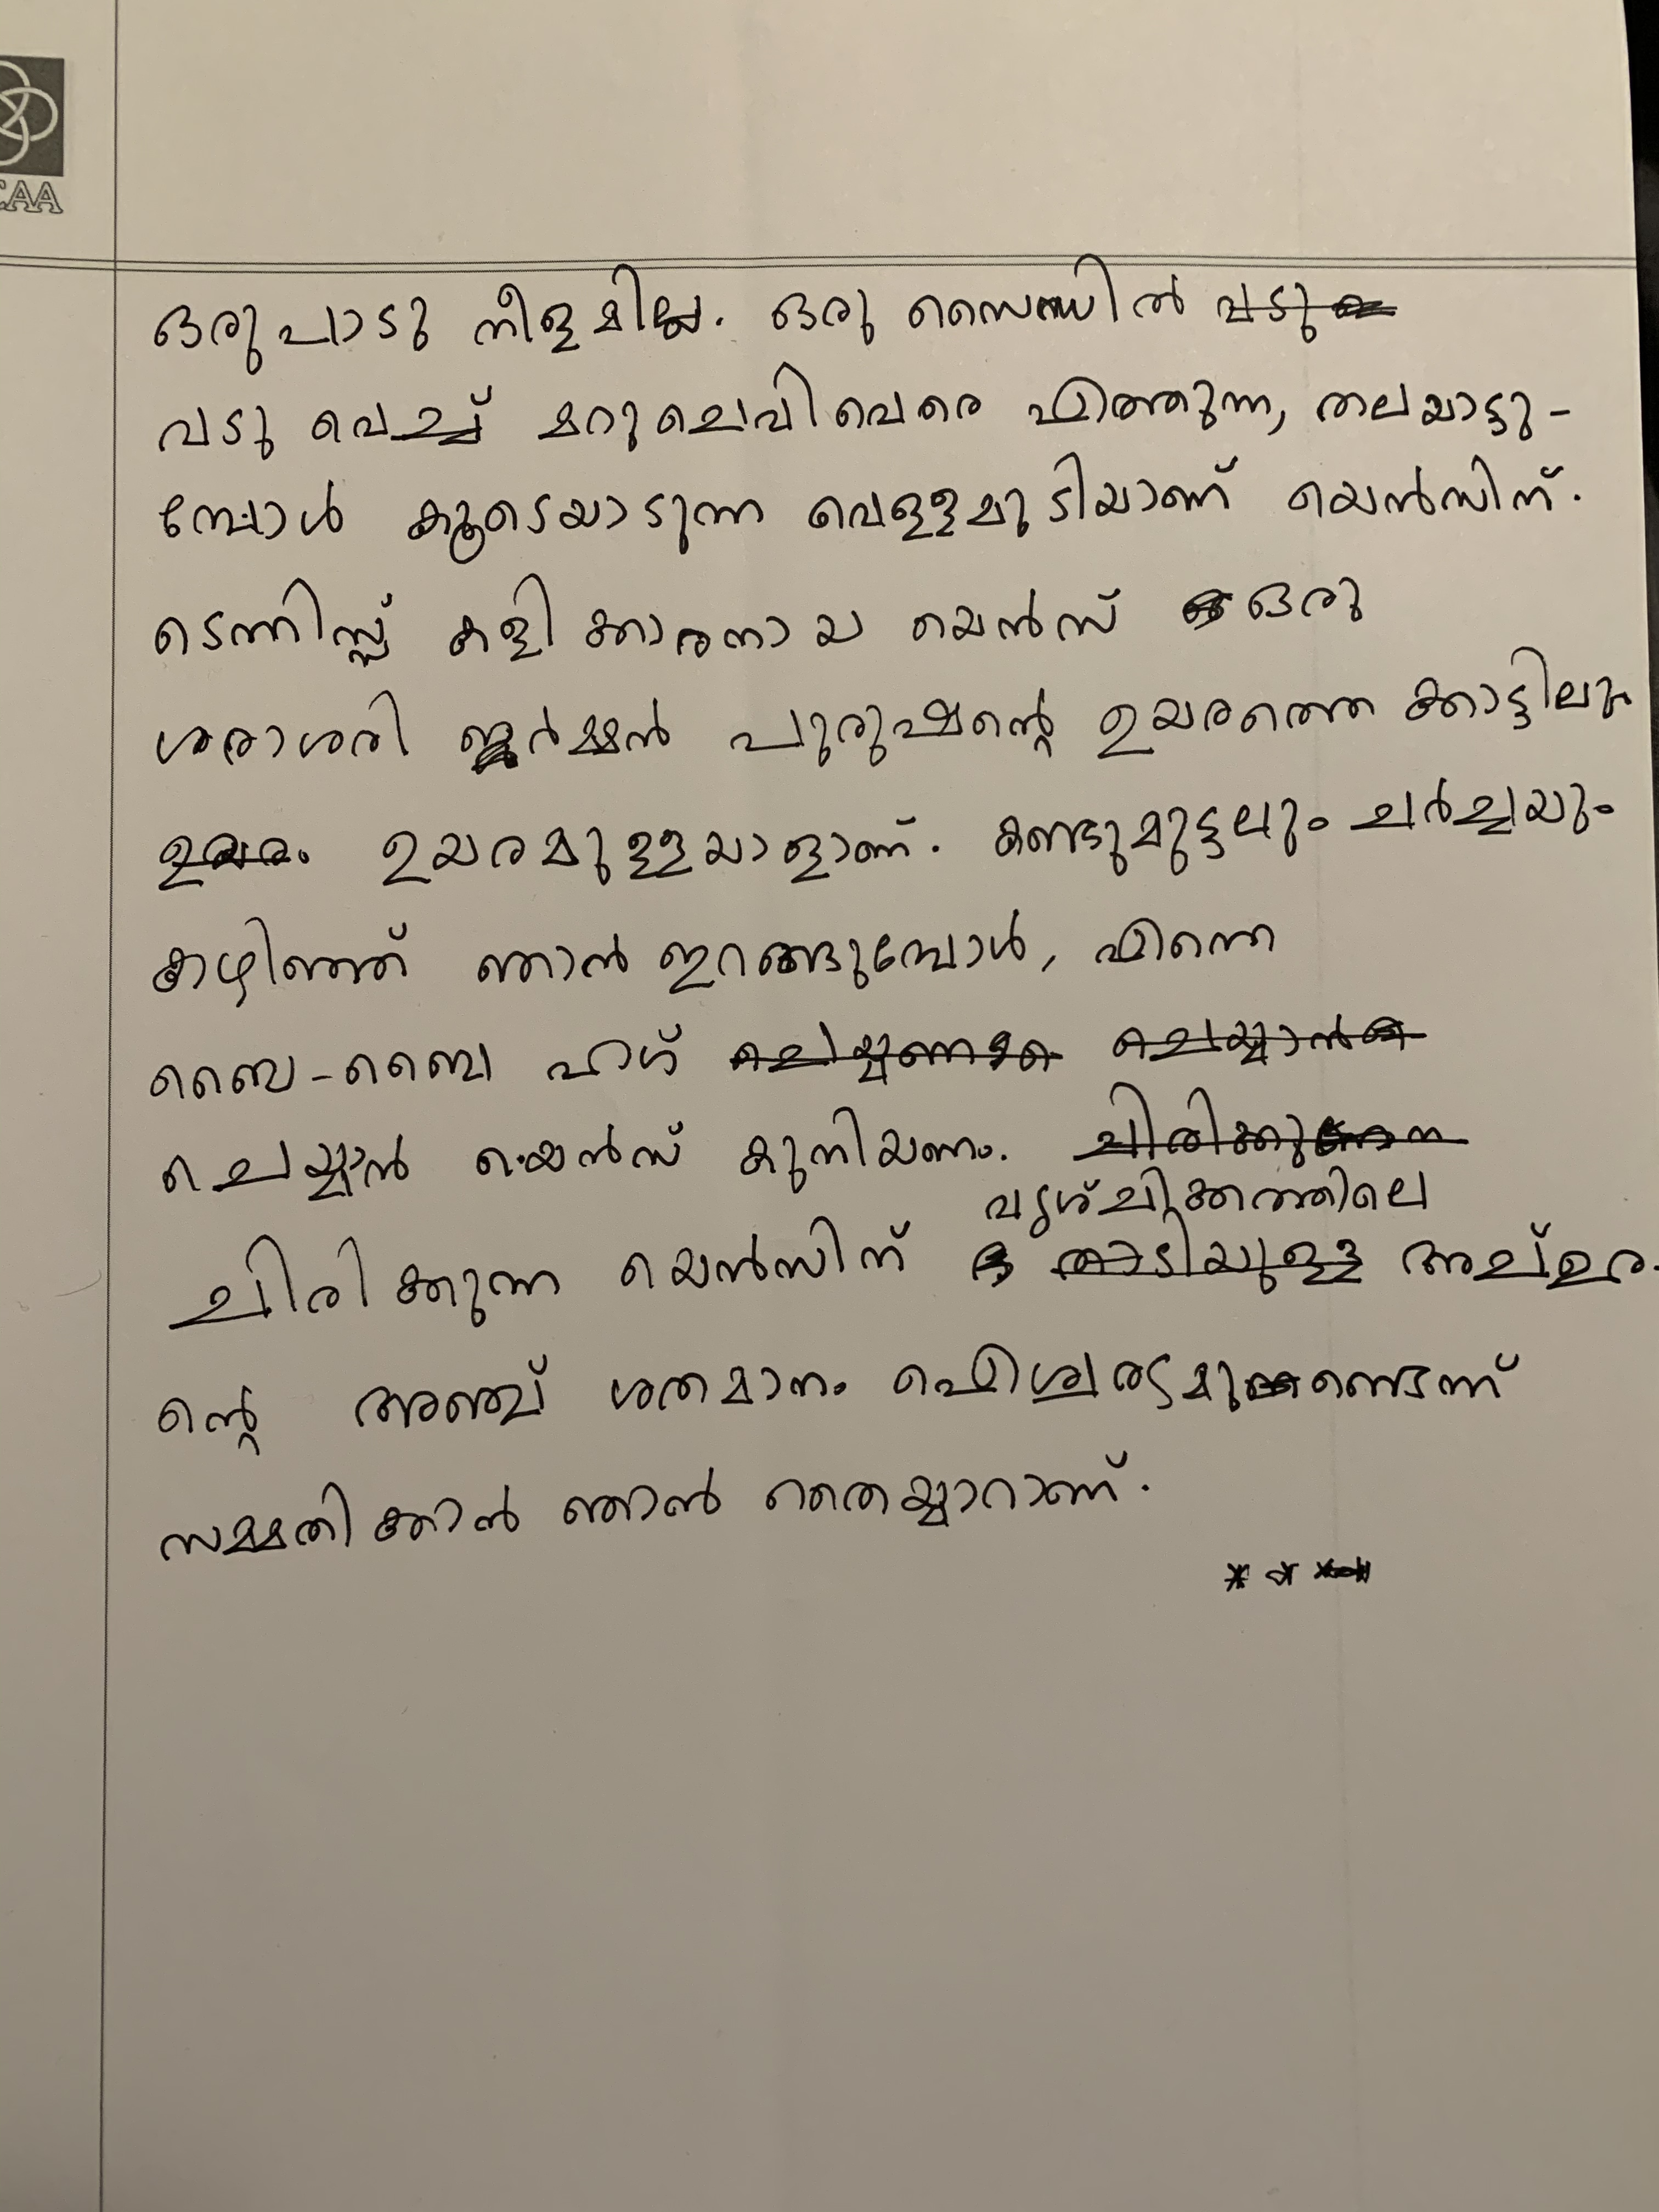 CAA
ഒരുപാടു നീളമില്ല. ഒരു സൈഡിൽ വടു
വടു വെച്ച് മറുചെവിവരെ എത്തുന്ന, തലയാട്ടു-
മ്പോൾ കൂടെയാടുന്ന വെള്ളമുടിയാണ് യെൻസിന്.
ടെന്നിസ്സ് കളിക്കാരനായ യെൻസ് ഒരു
ശരാശരി ജർമ്മൻ പുരുഷന്റെ ഉയരത്തെക്കാട്ടിലും
ഉയരം ഉയരമുള്ളയാളാണ്. കണ്ടുമുട്ടലും ചർച്ചയും
കഴിഞ്ഞ് ഞാൻ ഇറങ്ങുമ്പോൾ, എന്നെ
ബൈ-ബൈ ഹഗ് ചെയ്യാൻ
ചെയ്യാൻ യെൻസ് കുനിയണം. ചിരിക്കുന്ന
വട്ടശ്ചിത്രത്തിലെ
ചിരിക്കുന്ന യെൻസിന് താടിയുള്ള അച്ഉര-
ന്റെ അഞ്ച് ശതമാനം ഐശ്വര്യമുണ്ടെന്ന്
സമ്മതിക്കാൻ ഞാൻ തൈയ്യാറാണ്.
* * *